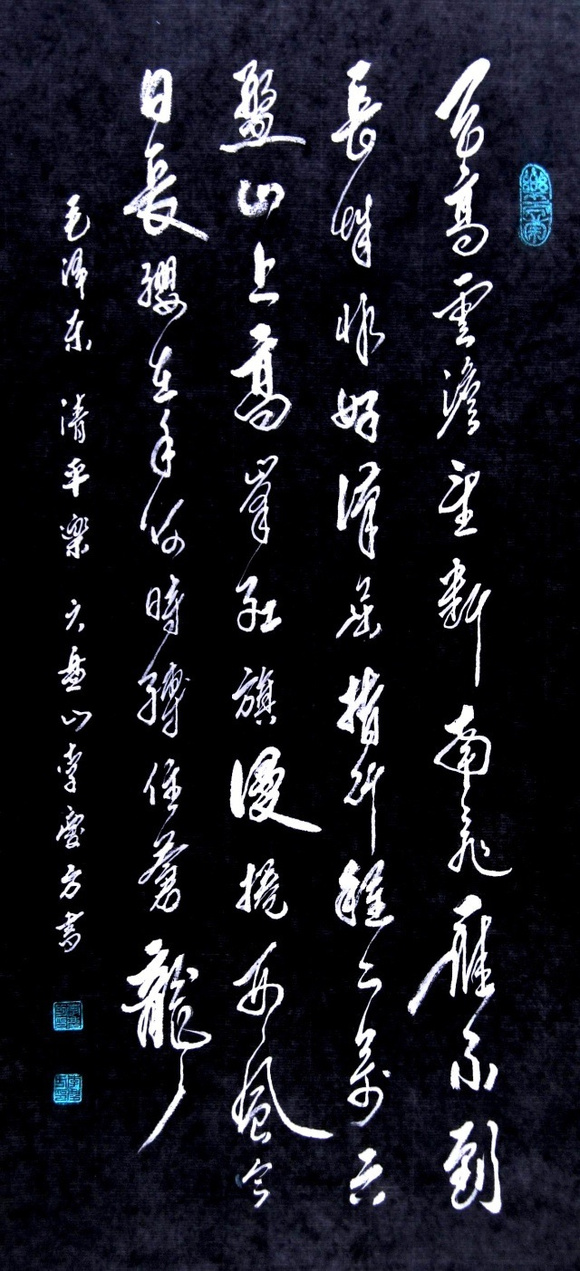 天高雲澹望断南飛雁不到
長城非好漢屈指行程二萬六
盤山上高峯紅旗漫捲西風今
日長纓在手何時縛住蒼龍
毛泽东 清平樂 六盘山李慶方書